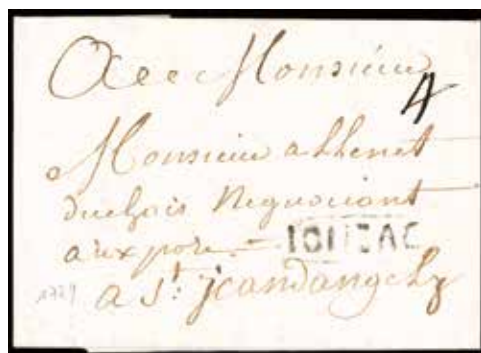 A Monsieur
4
Monsieur allenet
duchois Neguosiant
aux pore JONZAC
1729 a St. jeandangely